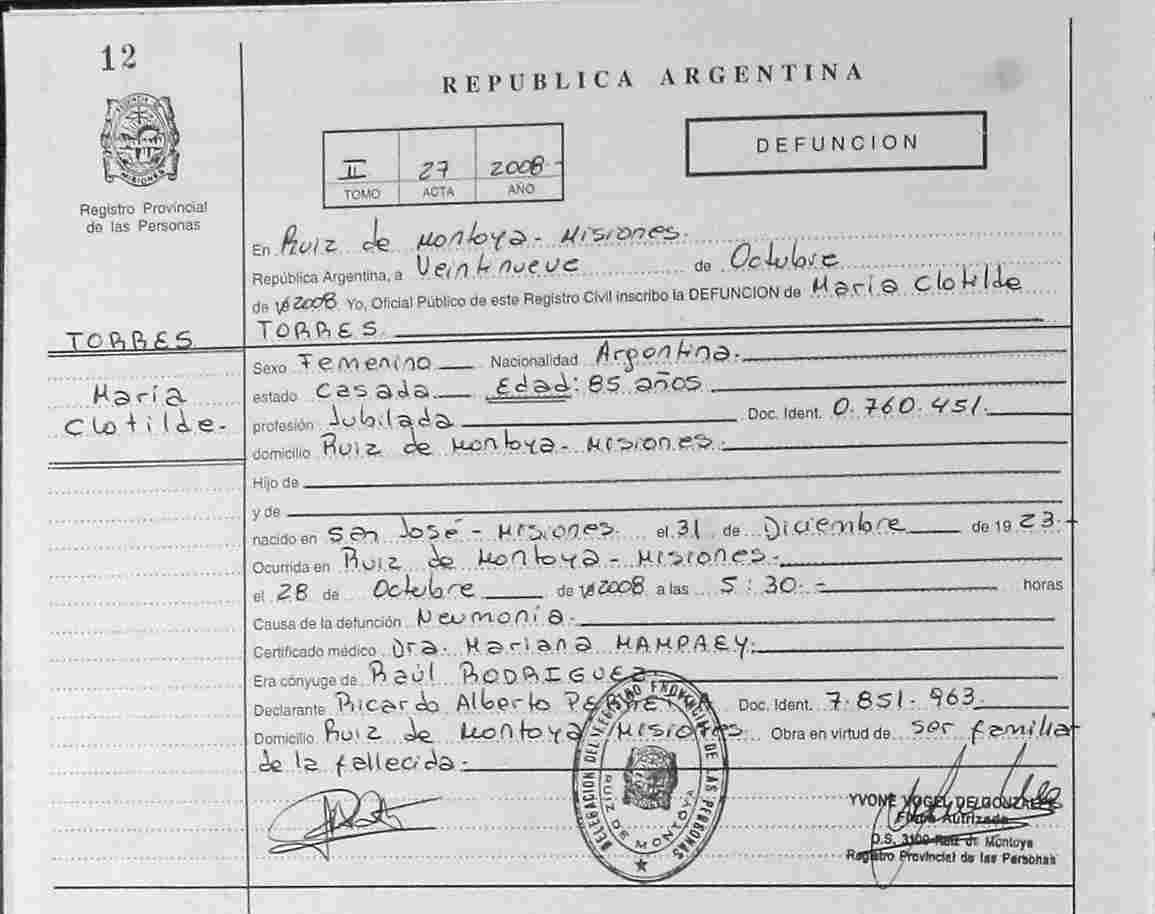 12
REPUBLICA ARGENTINA
DEFUNCION
II 27 2008
TOMO ACTA AÑO
PROVINCIA DE MISIONES
Registro Provincial
de las Personas
En Ruiz de Montoya - Misiones.
República Argentina, a Veintinueve de Octubre
de 2008 Yo, Oficial Público de este Registro Civil inscribo la DEFUNCION de María Clotilde
TORRES
TORRES
María
Clotilde.-
Sexo Femenino Nacionalidad Argentina.
estado Casada Edad: 85 años
profesión Jubilada Doc. Ident. 0.760.451.
domicilio Ruiz de Montoya - Misiones.
Hijo de
y de
nacido en San José - Misiones. el 31 de Diciembre de 1923.
Ocurrida en Ruiz de Montoya - Misiones.
el 28 de Octubre de 2008 a las 5:30.- horas
Causa de la defunción Neumonía.
Certificado médico Dra. Mariana MAMPAEY.
Era cónyuge de Raúl RODRIGUEZ
Declarante Ricardo Alberto Doc. Ident. 7.851.963.
Domicilio Ruiz de Montoya Misiones Obra en virtud de ser familia
de la fallecida.
DELEGACION DEL REGISTRO PROVINCIAL DE LAS PERSONAS
RUIZ DE MONTOYA
YVONE VOGEL DE GONZALEZ
Firma Autrizada
D.S. 3100 Ruiz de Montoya
Registro Provincial de las Personas